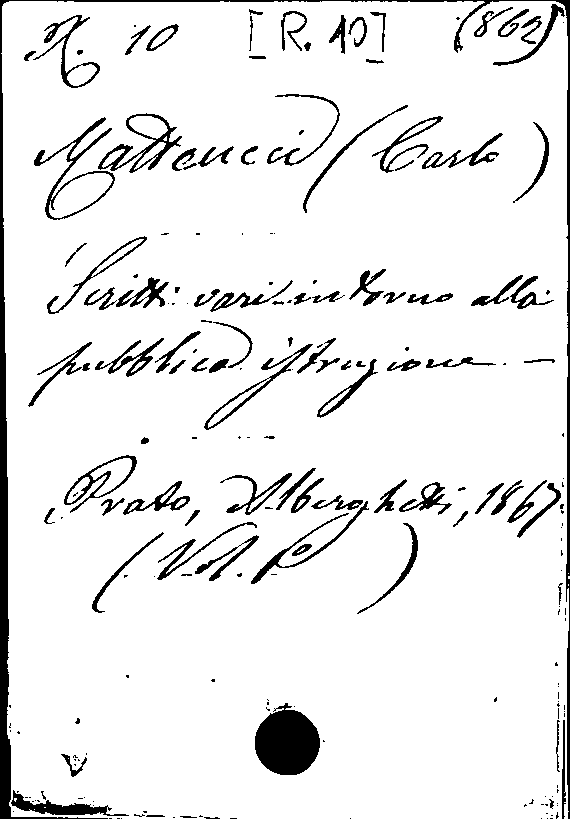 R. 10 [R. 10] (862)
Matteucci (Carlo)
Scritti vari intorno alla
pubblica istruzione —
Prato, Alberghetti, 1867
(Vol. I°)